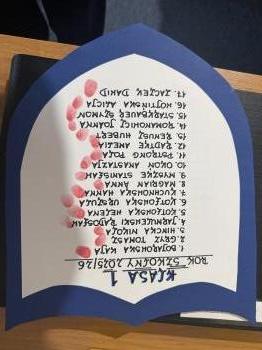 KLASA 1
ROK SZKOLNY 2025/26
1. BOJAROWSKA KAJA
2. GRYZ TOMASZ
3. HINCKA NIKOLA
4. JARMELEWSKI RADOSŁAW
5. KOTŁOWSKA HELENA
6. KOTŁOWSKA URSZULA
7. KUCHNOWSKA HANNA
8. MAGRIAN ANNA
9. MYSZKE STANISŁAW
10. OKOŃ ANASTAZJA
11. PETRONG POLA
12. RADTKE AMELIA
13. REHUSZ HUBERT
14. ROMANOWICZ JOANNA
15. STARKBAUER SZYMON
16. WOTYŃSKA ALICJA
17. JACZEK DAWID